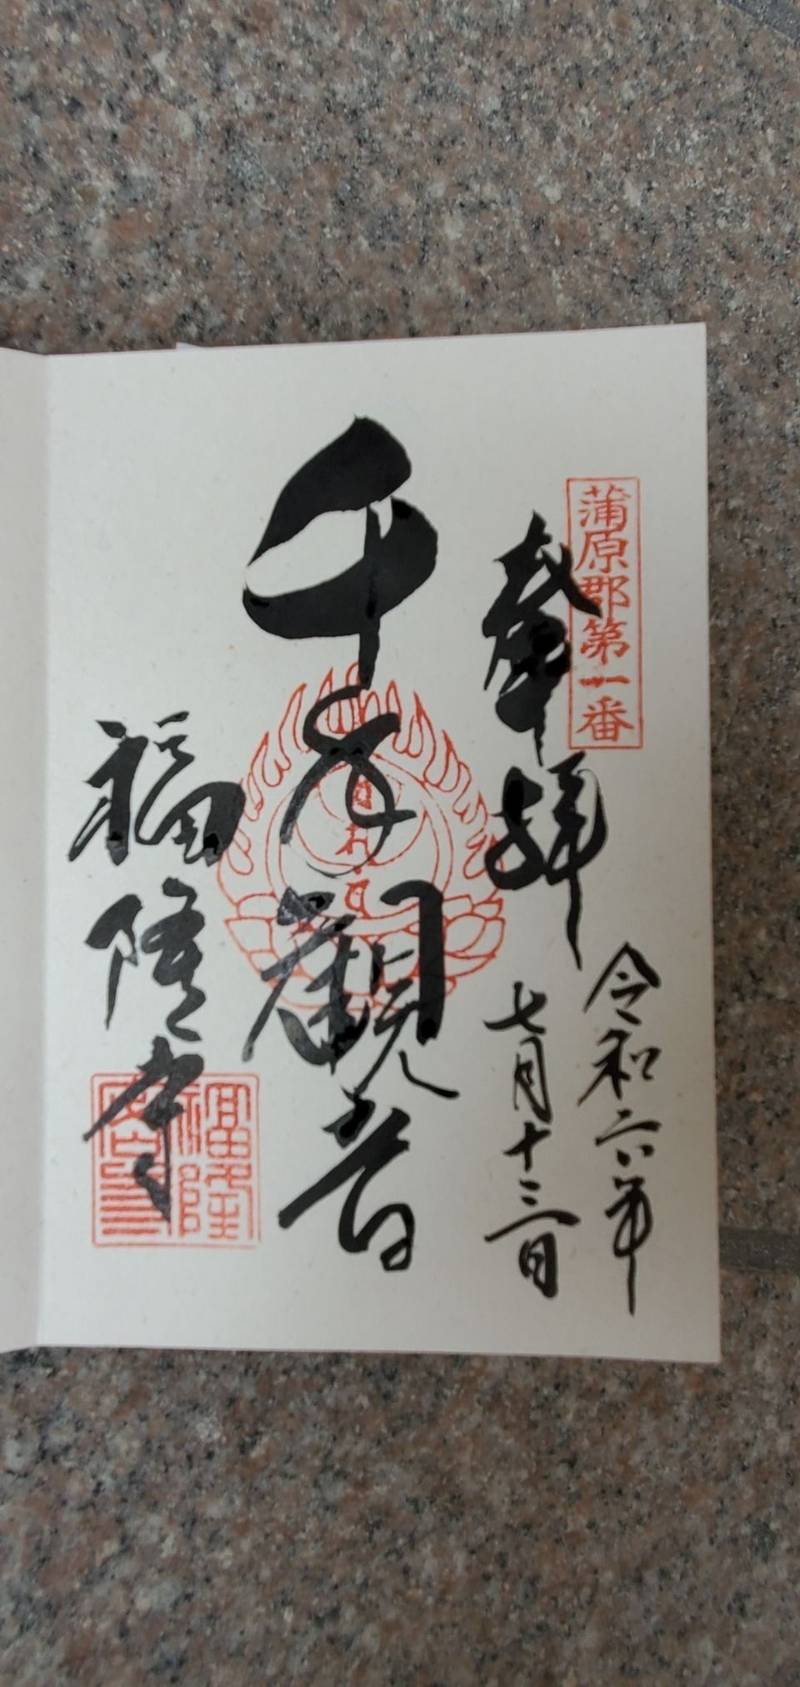 蒲原郡第一番
奉拝
令和六年
七月十三日
千手観音
福隆寺